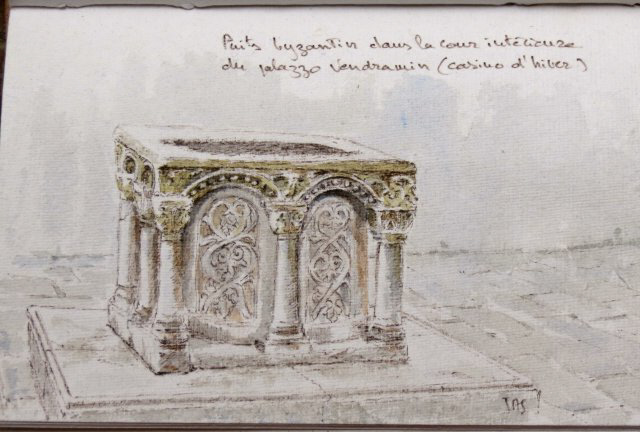 Puits byzantin dans la cour intérieure
du palazzo Vendramin (casino d'hiver)